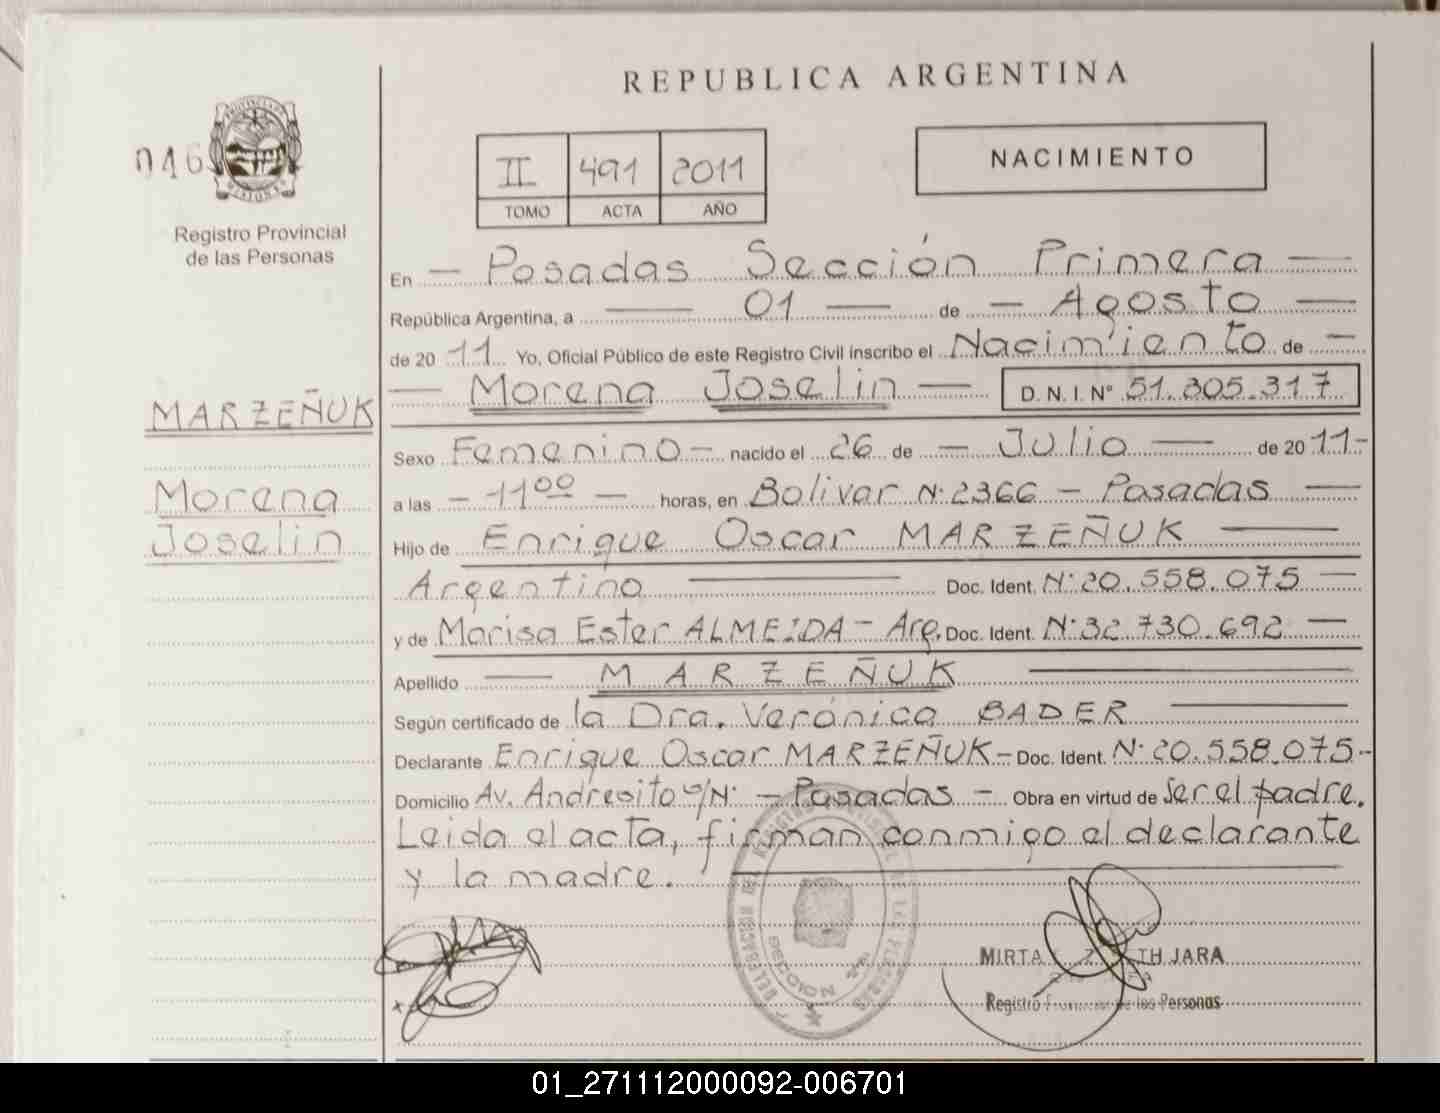 REPUBLICA ARGENTINA
046
II 491 2011
TOMO ACTA AÑO
NACIMIENTO
Registro Provincial
de las Personas
En — Posadas Sección Primera —
República Argentina, a — 01 — de — Agosto —
de 20 11 Yo, Oficial Público de este Registro Civil inscribo el Nacimiento de —
— Morena Joselin — D.N.I. Nº 51.305.317
MARZEÑUK
Morena
Joselin
Sexo Femenino — nacido el 26 de — Julio — de 20 11-
a las — 11⁰⁰ — horas, en Bolivar N· 2366 — Posadas —
Hijo de Enrique Oscar MARZEÑUK —
Argentino — Doc. Ident. N· 20.558.075 —
y de Marisa Ester ALMEIDA - Arg. Doc. Ident. N· 32.730.692 —
Apellido — MARZEÑUK —
Según certificado de la Dra. Verónica BADER —
Declarante Enrique Oscar MARZEÑUK - Doc. Ident. N· 20.558.075-
Domicilio Av. Andresito s/N· — Posadas — Obra en virtud de ser el padre.
Leida el acta, firman conmigo el declarante
y la madre. —
MIRTA TH JARA
Registro de las Personas
SECCION
01_271112000092-006701